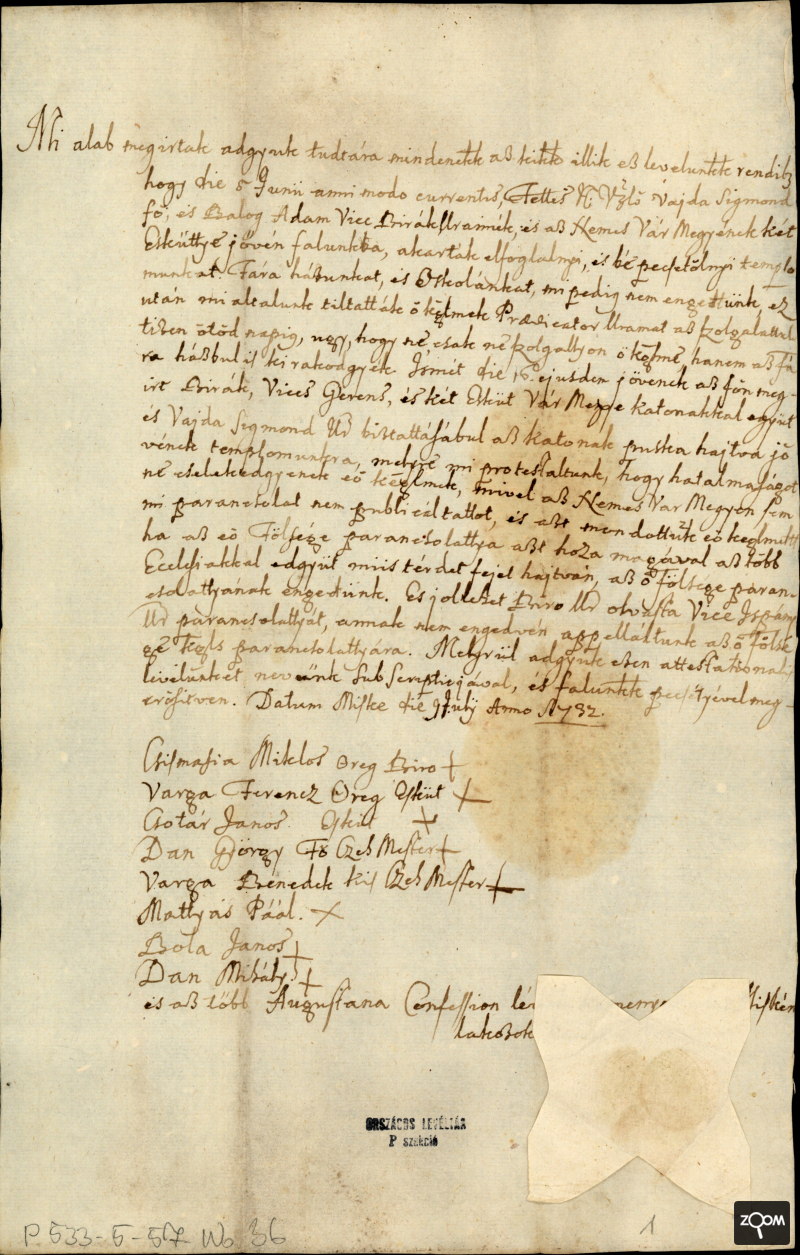 Mi alab megirtak adgyuk tudtára mindenekk aß kikk illik eß levelunkk rendib
hogy die 5 Junii anni modo currentis, Tettes N. Vzlo Vajda Sigmond
fő, és Balog Adam Vice Birák Uraimék, és aß Nemes Vár Megyének két
Esküttye jövén falunkba, akarták elfoglalnyi, és bé pecsetölnyi templo
munkat Fára háßunkat, és Oskolánkat, mi pedig nem engettünk, ez
után mi altalunk tiltatták ő kglmek Prædicator Uramat aß szolgalattul
tißen ötöd napig, ugy, hogy né, csak né szolgallyon ő kglme, hanem aß fá
ra háßbul is ki rakodgyék. Ismét die 16 ejusdem jövének aß fön meg-
irt Birák, Vices Gerens, és két Esküt Vár Megye katonakkal együt
és Vajda Sigmond Ur biztattásábul aß katonak puska hajtva jö
vének templomunkra, melyre mi protestaltunk, hogy hatalmaságot
né cselekedgyenek eő kglmek, mivel aß Nemes Var Megyén sem
mi parancsolat nem publicáltattot, és aßt mondottuk eő kegmekk
ha aß eő Fölsége parancsolattya aßt hoza magával aß több
Ecclesiakkal edgyüt mi is térdet fejet hajtván, aß ő Fölsege paran-
csolattyának engedünk. Es jollehet Biro Ur olvasta Vice Ispány
Ur parancsolattyát, annak nem engedvén appelláltunk aß ő fölsé
ge kgls parancsolattyára. Melyrül adgyuk eßen attestationalis
levelünket nevünk subscriptiojával, és falunkk pecsétyével meg-
erősitven. Datum Miske die 9 July Anno 1732.
Csismasia Miklos Oreg Biro +
Varga Ferencz Oreg Esküt +
Csotár Janos Esküt +
Dan György Fő Czeh Mester +
Varga Bénedek kis Czeh Mester +
Mattyás Páál. +
Bola Janos +
Dan Mihály. +
és aß több Augustana Confession
lakoßok
ORSZÁGOS LEVÉLTÁR
P SZEKCIÓ
P 533-5-57 No 36
1
ZOOM